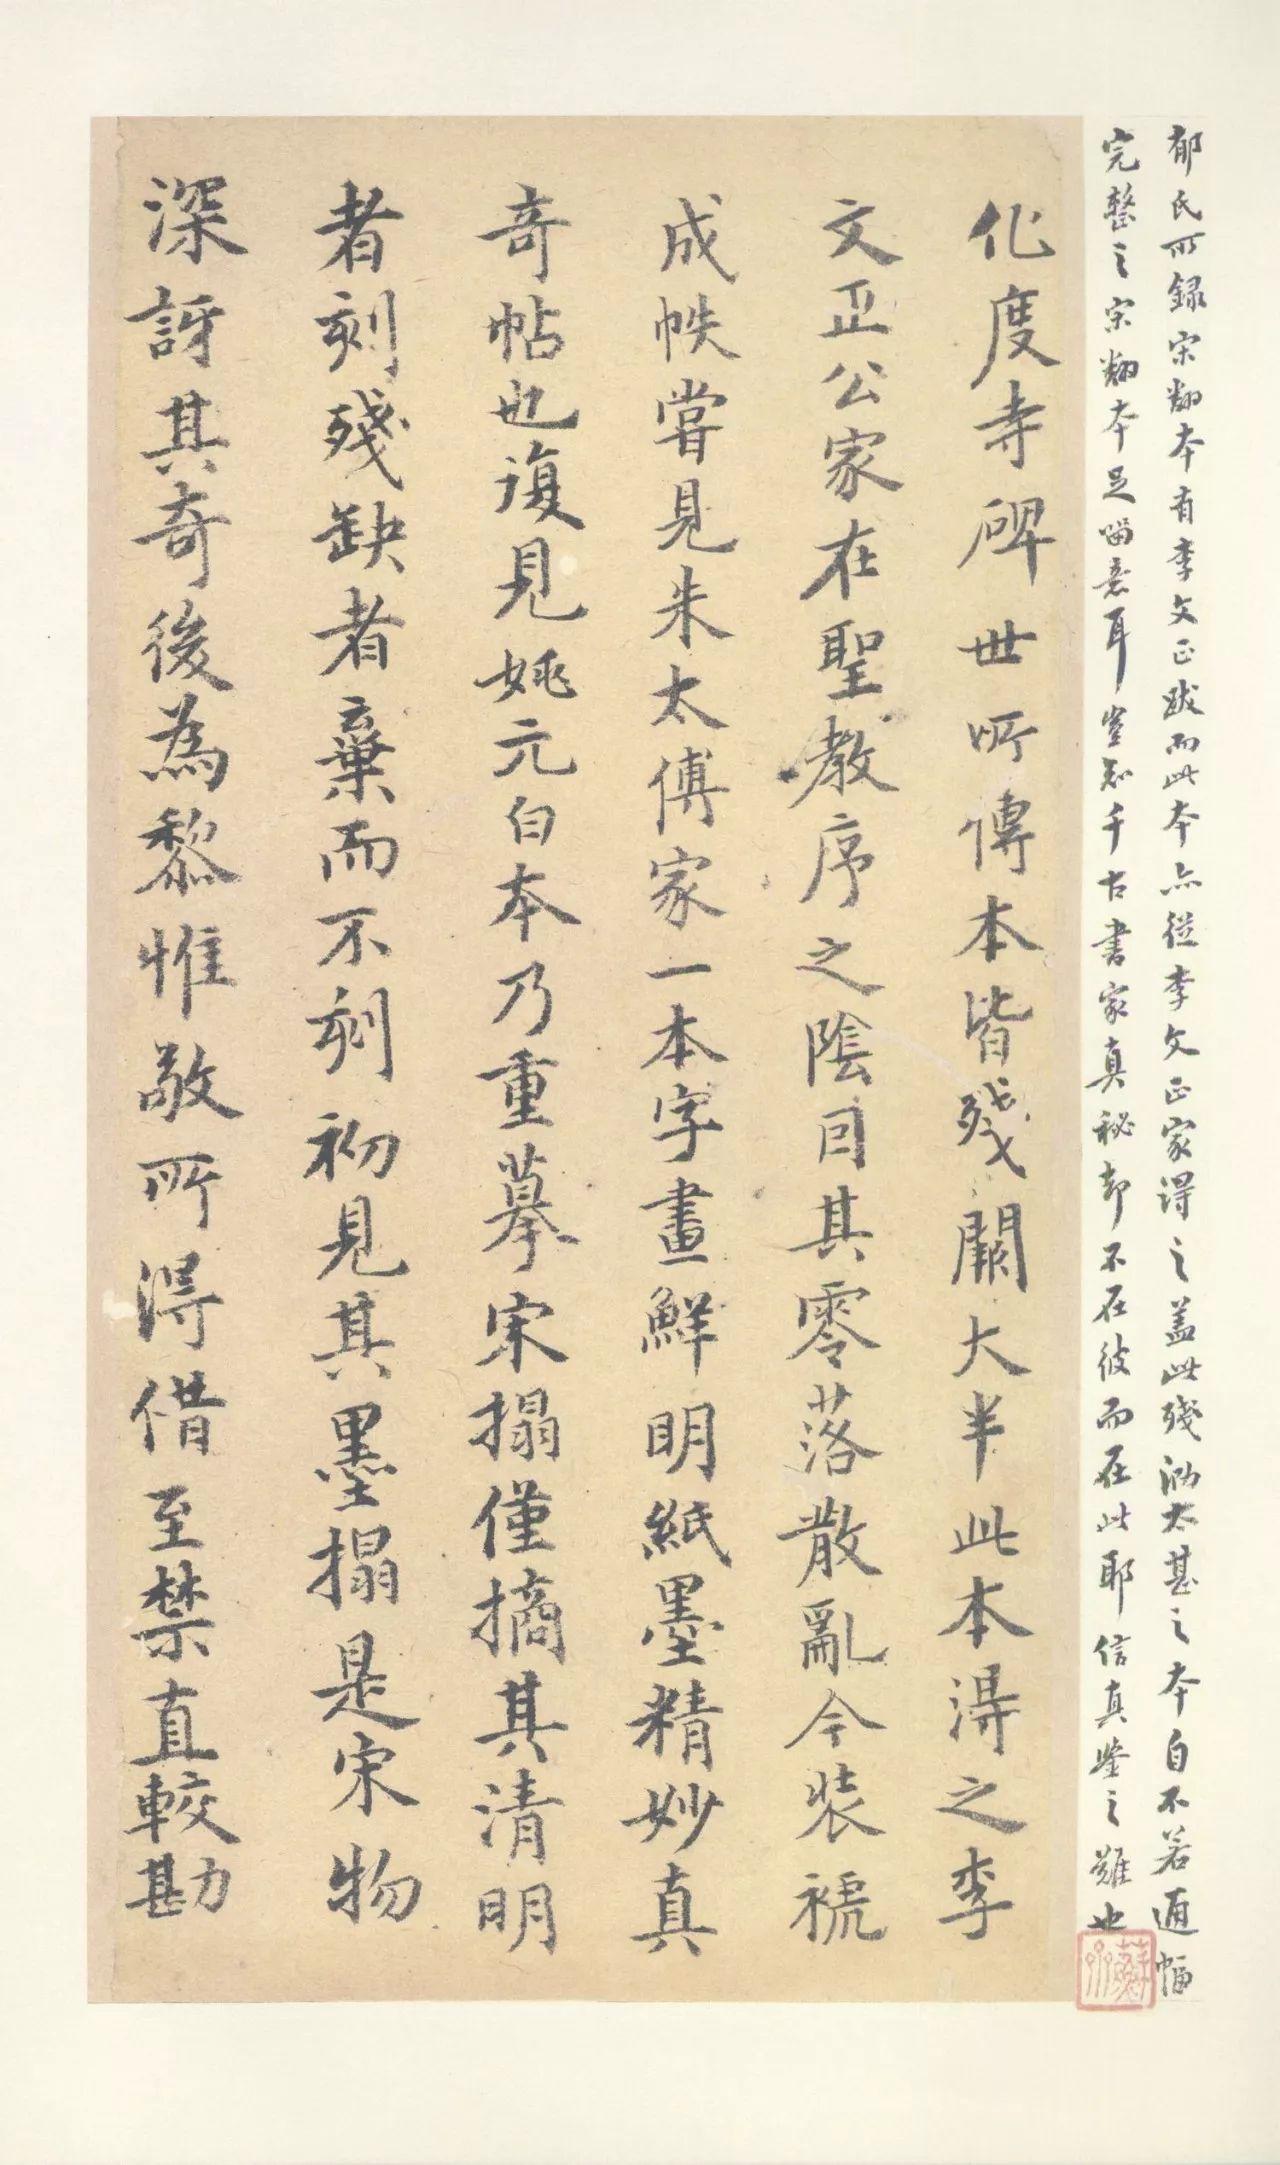 郁氏所録宋翻本有李文正跋而此本亦從李文正家得之蓋此殘泐太甚之本自不若通幅
完整之宋翻本足留意耳豈知千古書家真秘却不在彼而在此耶信真鑒之難也
化度寺碑世所傳本皆殘闕大半此本得之李
文正公家在聖教序之陰囙其零落散亂今裝褫
成帙嘗見朱太傅家一本字畫鮮明紙墨精妙真
奇帖也復見姚元白本乃重摹宋搨僅摘其清明
者刻殘缺者棄而不刻初見其墨搨是宋物
深訝其奇後為黎惟敬所得借至禁直較勘
蘇